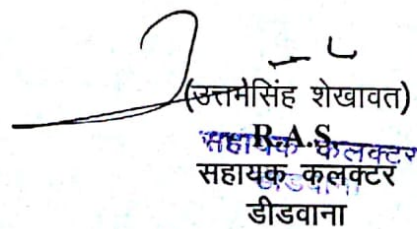 (उत्तमसिंह शेखावत)
R.A.S.
सहायक कलक्टर
सहायक कलक्टर
डीडवाना